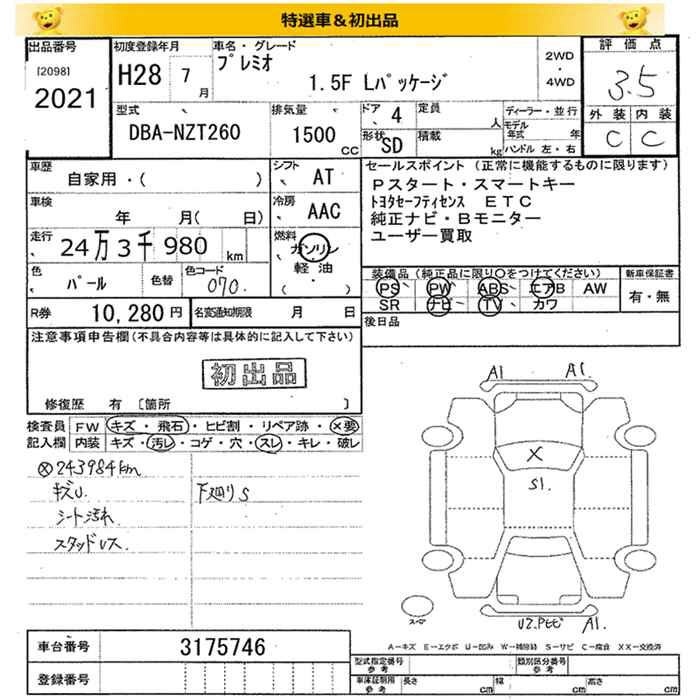 特選車＆初出品
出品番号
[2098]
2021
初度登録年月
H28 7月
車名・グレード
プレミオ
1.5F Lパッケージ
2WD
・
4WD
評価点
3.5
外装 内装
C C
型式
DBA-NZT260
排気量
1500 CC
ドア 4
形状 SD
定員 人
積載 kg
ディーラー・並行
モデル年式 年
ハンドル 左・右
車歴
自家用・( )
車検
年 月( 日)
走行
24万3千980 km
色
パール
色替
色コード
070
シフト
AT
冷房
AAC
燃料
ガソリン
軽油
( ・ )
セールスポイント (正常に機能するものに限ります)
Pスタート・スマートキー
トヨタセーフティセンス ETC
純正ナビ・Bモニター
ユーザー買取
装備品(純正品に限り○をつけてください)
PS PW ABS エアB AW
SR ナビ TV カワ
新車保証書
有・無
後日品
R券 10,280円
名変通知期限 月 日
注意事項申告欄(不具合内容等は具体的に記入して下さい)
初出品
修復歴 有 〔箇所 〕
検査員記入欄
FW キズ・飛石・ヒビ割・リペア跡・×要
内装 キズ・汚レ・コゲ・穴・スレ・キレ・破レ
ⓧ243984km
キズU.
下廻りS
シート汚れ
スタッドレス
A1 A1.
X
S1.
スペア
U2.Pセビ A1.
A-キズ E-エクボ U-凹み W-補修跡 S-サビ C-腐食 XX-交換済
車台番号 3175746
登録番号
型式指定番号 参考
類別区分番号 参考
車庫証明用 参考
長さ cm
幅 cm
高さ cm